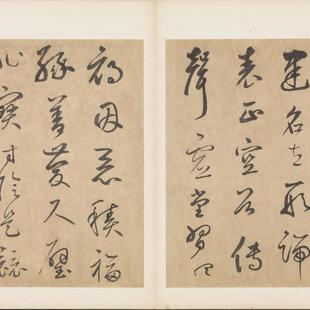 建名立形端
表正空谷傳
聲虛堂習聽
禍因惡積福
緣善慶尺璧
非寶寸陰是競